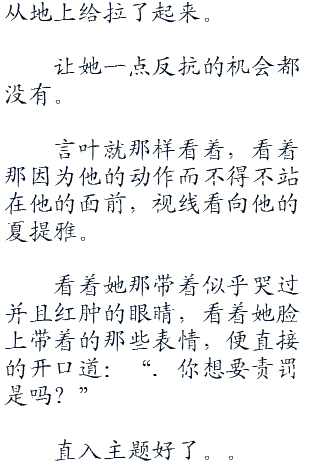 从地上给拉了起来。
让她一点反抗的机会都
没有。
言叶就那样看着，看着
那因为他的动作而不得不站
在他的面前，视线看向他的
夏提雅。
看着她那带着似乎哭过
并且红肿的眼睛，看着她脸
上带着的那些表情，便直接
的开口道：“．你想要责罚
是吗？”
直入主题好了。。